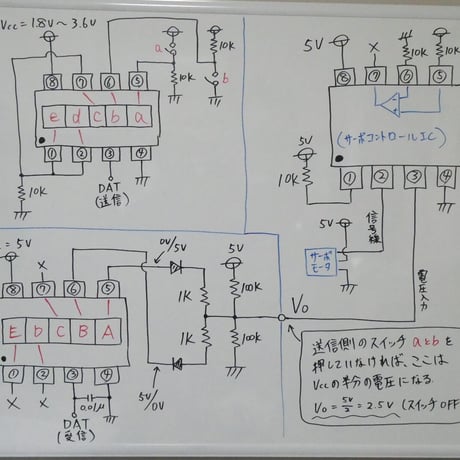 Vcc=1.8V～3.6V
a
10K
10K
b
⑧ ⑦ ⑥ ⑤
e d c b a
① ② ③ ④
10K
DAT
(送信)
5V
X
10K
⑧ ⑦ ⑥ ⑤
(サーボコントロールIC)
5V
10K
① ② ③ ④
5V
信号線
サーボ
モータ
電圧入力
= 5V
X
0V/
5V
5V
⑧ ⑦ ⑥ ⑤
1K
100K
E D C B A
1K
100K
Vo
① ② ③ ④
X X
0.01μ
5V/
0V
DAT
(受信)
送信側のスイッチaとbを
押していなければ、ここは
Vccの半分の電圧になる
Vo = 5V/2 = 2.5V (スイッチOFF